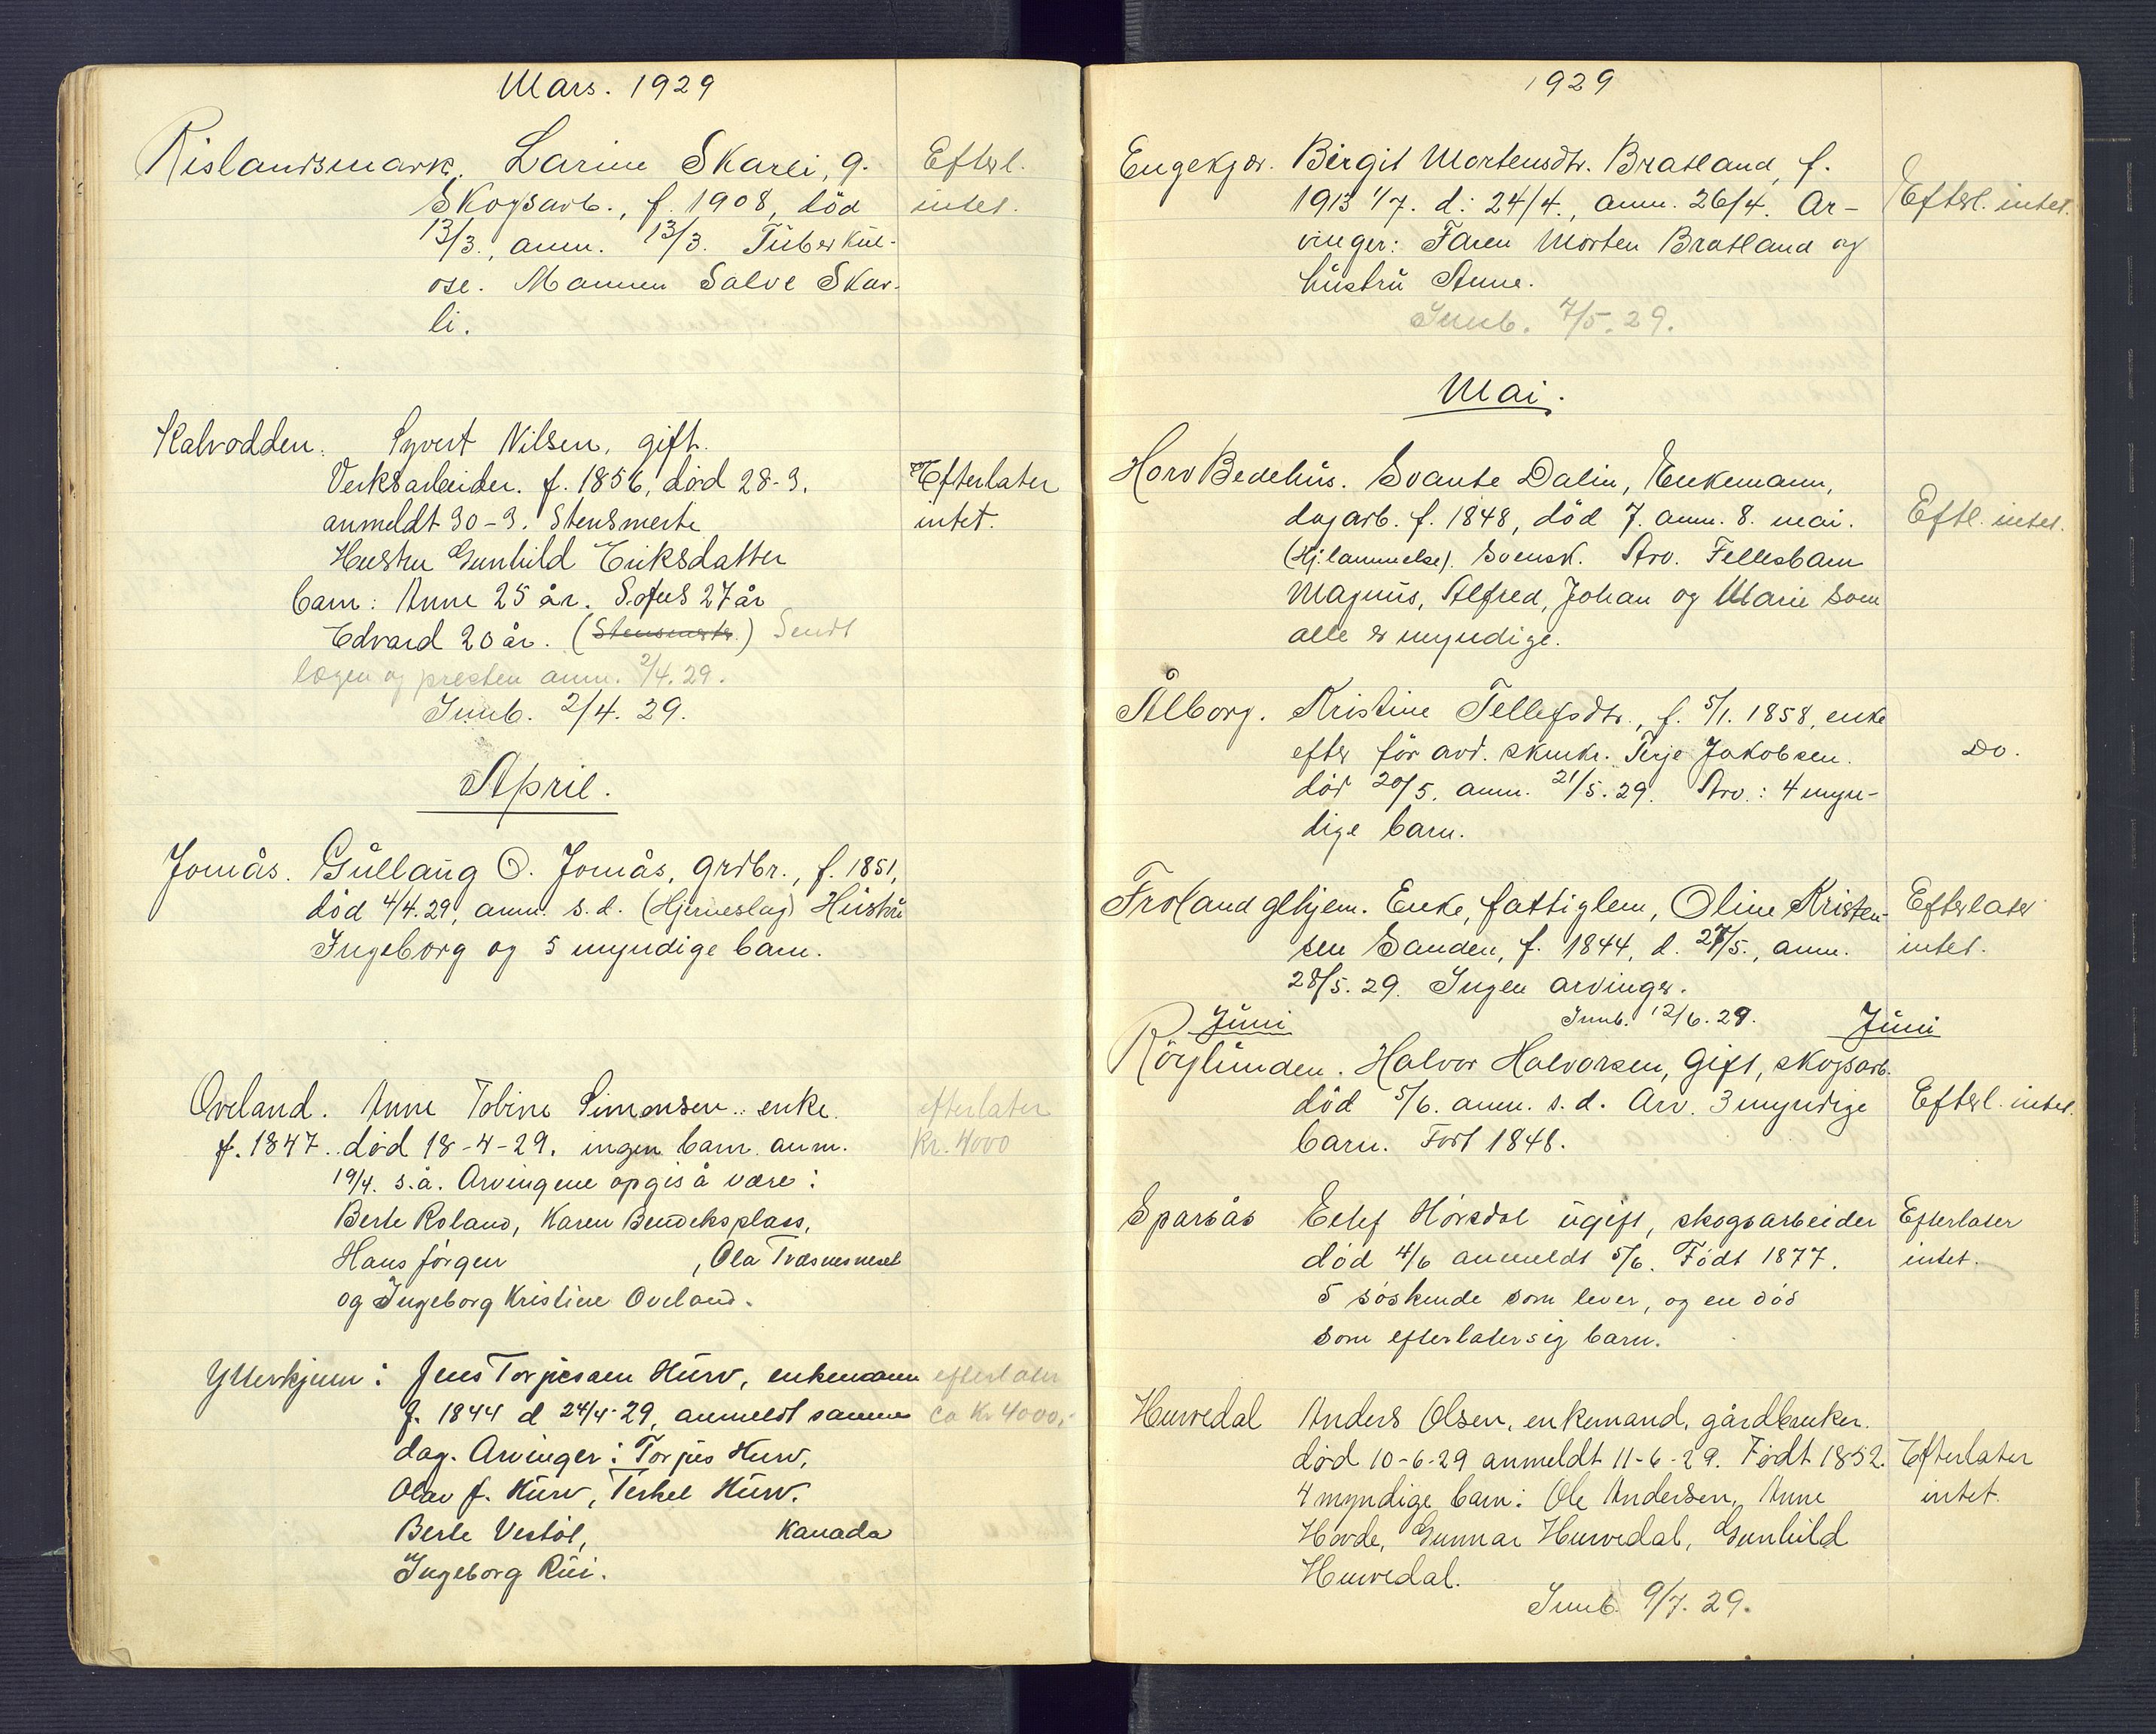 Mars. 1929
Rislandsmark. Larine Skarli, g. Efterl.
Skogsarb., f. 1908, död intet.
13/3., anm. 13/3. Tüberkül-
ose. Mannen Salve Skar-
li.
Kalvodden. Syvert Nilsen, gift.
Verksarbeider. f. 1856, död 28-3. Efterlater
anmeldt 30-3. Stensmerte intet.
Hustru Gunhild Eriksdatter
barn: Anne 25 år. Sofus 27 år
Edvard 20 år. (Stensmerte.) Sendt
lægen og presten anm. 2/4. 29.
Innb. 2/4. 29.
April.
Jomås. Güllaüg O. Jomås, grdbr., f. 1851,
död 4/4. 29, anm. s. d. (Hjerneslag) Hüstrü
Ingeborg og 5 myndige barn.
Oveland. Anne Tobine Simonsen.. enke. efterlater
f. 1847.. död 18-4-29. ingen barn. anm. Kr. 4000
19/4. s. å. Arvingene opgis å være:
Berte Roland, Karen Bendeksplass,
Hans Jörgen , Ola Træsnesneset
og Ingeborg Kristine Oveland.
Ytterkjenn: Jens Torjussen Hürv, enkemann efterlater
f. 1844 d 24/4-29, anmeldt samme ca Kr 4000,-
dag. Arvinger: Torjus Hurv,
Olav J. Hürv, Terkel Hürv.
Berte Vestöl, Kanada
Ingeborg Rüi.
1929
Engekjær. Birgit Mortensdtr. Bratland, f.
1913 1/7. d: 24/4., anm. 26/4. Ar- Efterl. intet.
vinger: Faren Morten Bratland og
hüstrü Anne.
Innb. 7/5. 29.
Mai.
Horv Bedehüs. Svante Dalin, Enkemann,
dagarb. f. 1848, död 7. anm. 8. mai. Eftl. intet.
(Hj. lammelse). Svensk. Arv. Fellesbarn
Magnüs, Alfred, Johan og Marie som
alle er myndige.
Ålborg. Kristine Tellefsdtr., f. 5/1. 1858, enke
efter för avd. skmkr. Terje Jakobsen. Do.
död 20/5. anm. 21/5. 29. Arv.: 4 myn-
dige barn.
Froland glhjem. Enke, fattiglem, Oline Kristen- Efterlater
sen Sanden, f. 1844, d. 27/5., anm. intet.
28/5. 29. Ingen arvinger.
Jüni Innb. 12/6. 29. Jüni
Röylünden. Halvor Halvorsen, Gift, skogsarb.
död 5/6. anm. s. d. Arv. 3 myndige Efterl. intet.
barn. Född 1848.
Sparsås Eilef Hörsdal ügift, skogsarbeider Efterlater
död 4/6 anmeldt 5/6. Födt 1877. intet.
5 söskende som lever, og en död
som efterlater sig barn.
Hurvedal Anders Olsen, enkemand, gårdbruker.
död 10-6-29 anmeldt 11-6-29. Födt 1852. Efterlater
4 myndige barn: Ole Andersen, Anne intet.
Hovde, Gunnar Hurvedal, Gunhild
Hurvedal.
Innb. 9/7. 29.